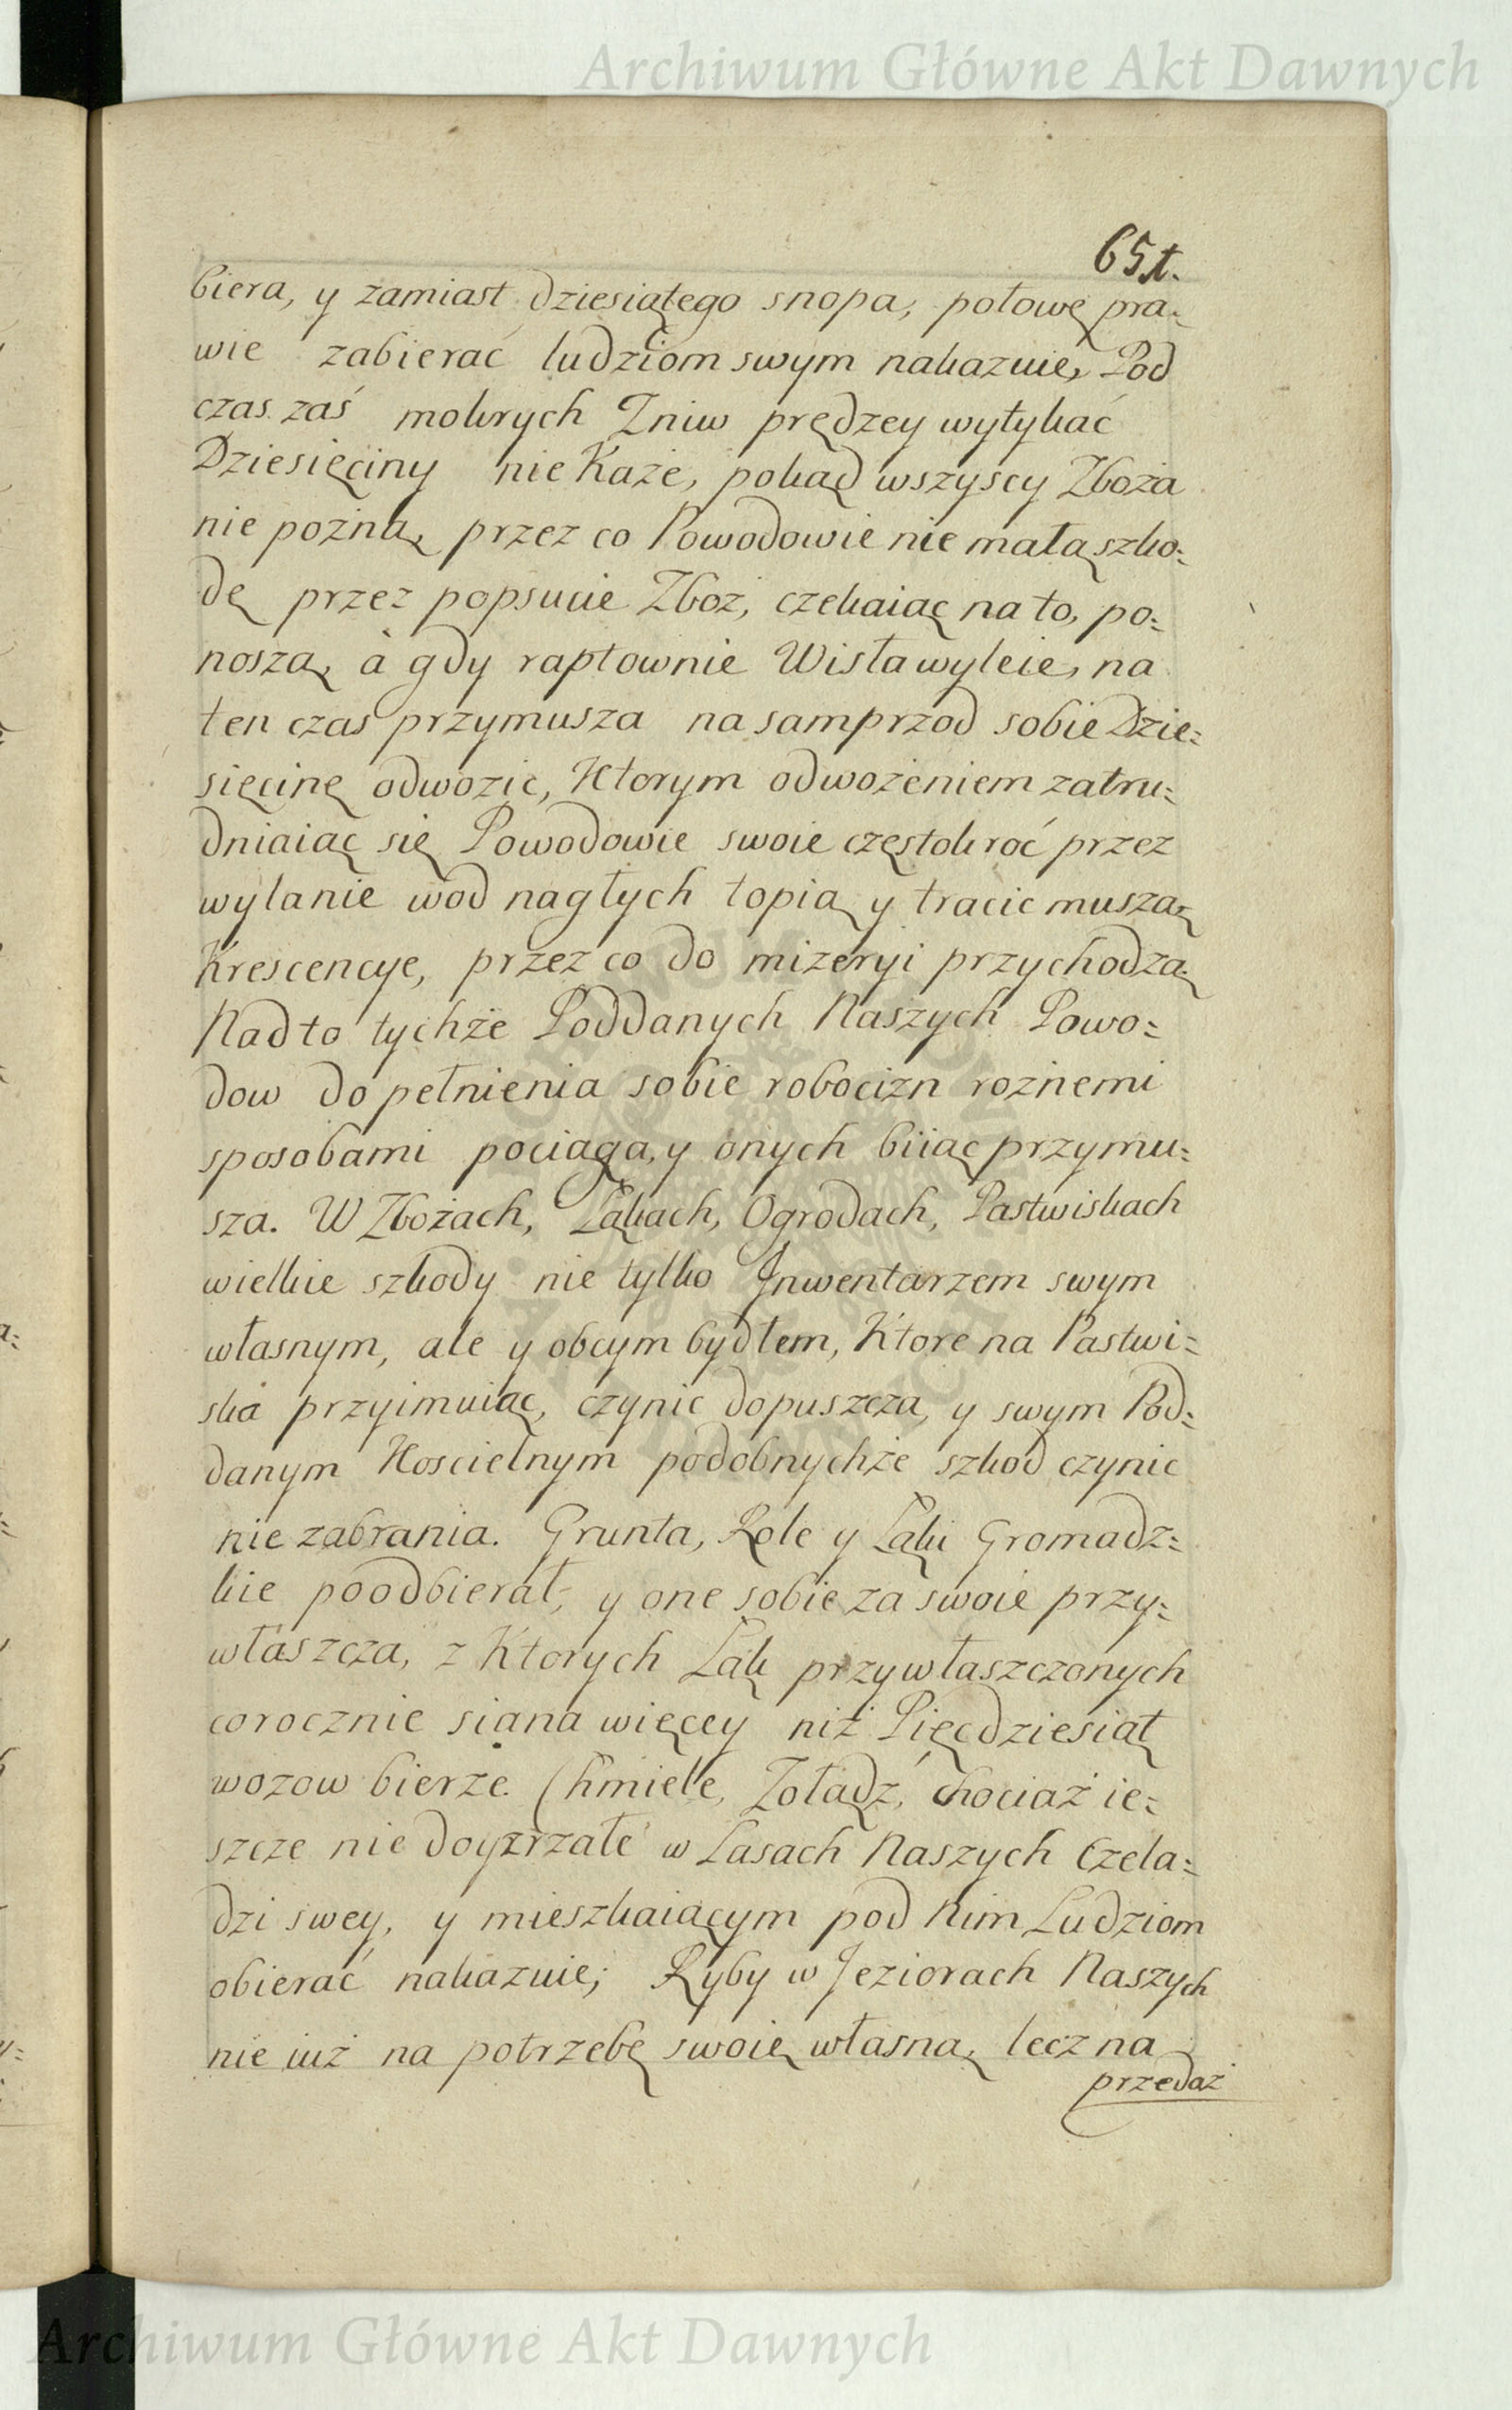 Archiwum Główne Akt Dawnych
651.
biera, y zamiast dziesiątego snopa, połowę pra=
wie zabierać ludziom swym nakazuie, Pod
czas zaś mokrych Zniw prędzey wytykać
Dziesięciny nie Każe, pokąd wszyscy Zboża
nie pożną, przez co Powodowie nie małą szko=
dę przez popsucie Zboż, czekaiąc na to, po=
noszą, à gdy raptownie Wisła wyleie, na
ten czas przymusza na samprzod sobie Dzie=
sięcinę odwozic, Ktorym odwożeniem zatru=
dniaiąc się Powodowie swoie częstokroć przez
wylanie wod nagłych topią y tracic muszą
Krescencye, przez co do mizeryi przychodzą.
Nad to tychże Poddanych Naszych Powo=
dow do pełnienia sobie robocizn rożnemi
sposobami pociąga, y onych biiąc przymu=
sza. W Zbożach, Łąkach, Ogrodach, Pastwiskach
wielkie szkody nie tylko Jnwentarzem swym
własnym, ale y obcym bydłem, Ktore na Pastwi=
ska przyimuiąc, czynic dopuszcza, y swym Pod=
danym Koscielnym podobnychże szkod czynic
nie zabrania. Grunta, Role y Łąki Gromadz=
kie poodbierał, y one sobie za swoie przy=
właszcza, z Ktorych Łąk przywłaszczonych
corocznie siana więcey niż Pięcdziesiąt
wozow bierze. Chmiele, Zołądz, chociaż ie=
szcze nie doyzrzałe w Lasach Naszych Czela=
dzi swey, y mieszkaiącym pod Nim Ludziom
obierać nakazuie; Ryby w Jeziorach Naszych
nie iuż na potrzebę swoię własną, lecz na
przedaż
Archiwum Główne Akt Dawnych